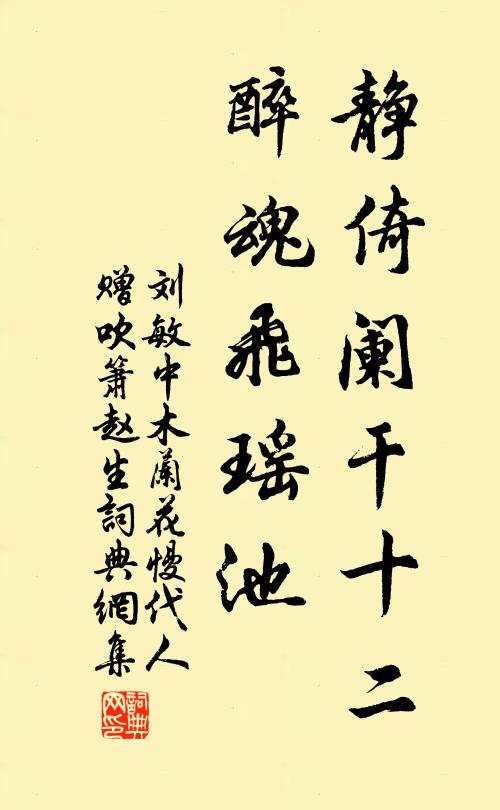 静倚阑干十二
醉魂飛瑶池
刘敏中木蘭花慢代人
赠吹簫赵生詞典網集
詞典
网印